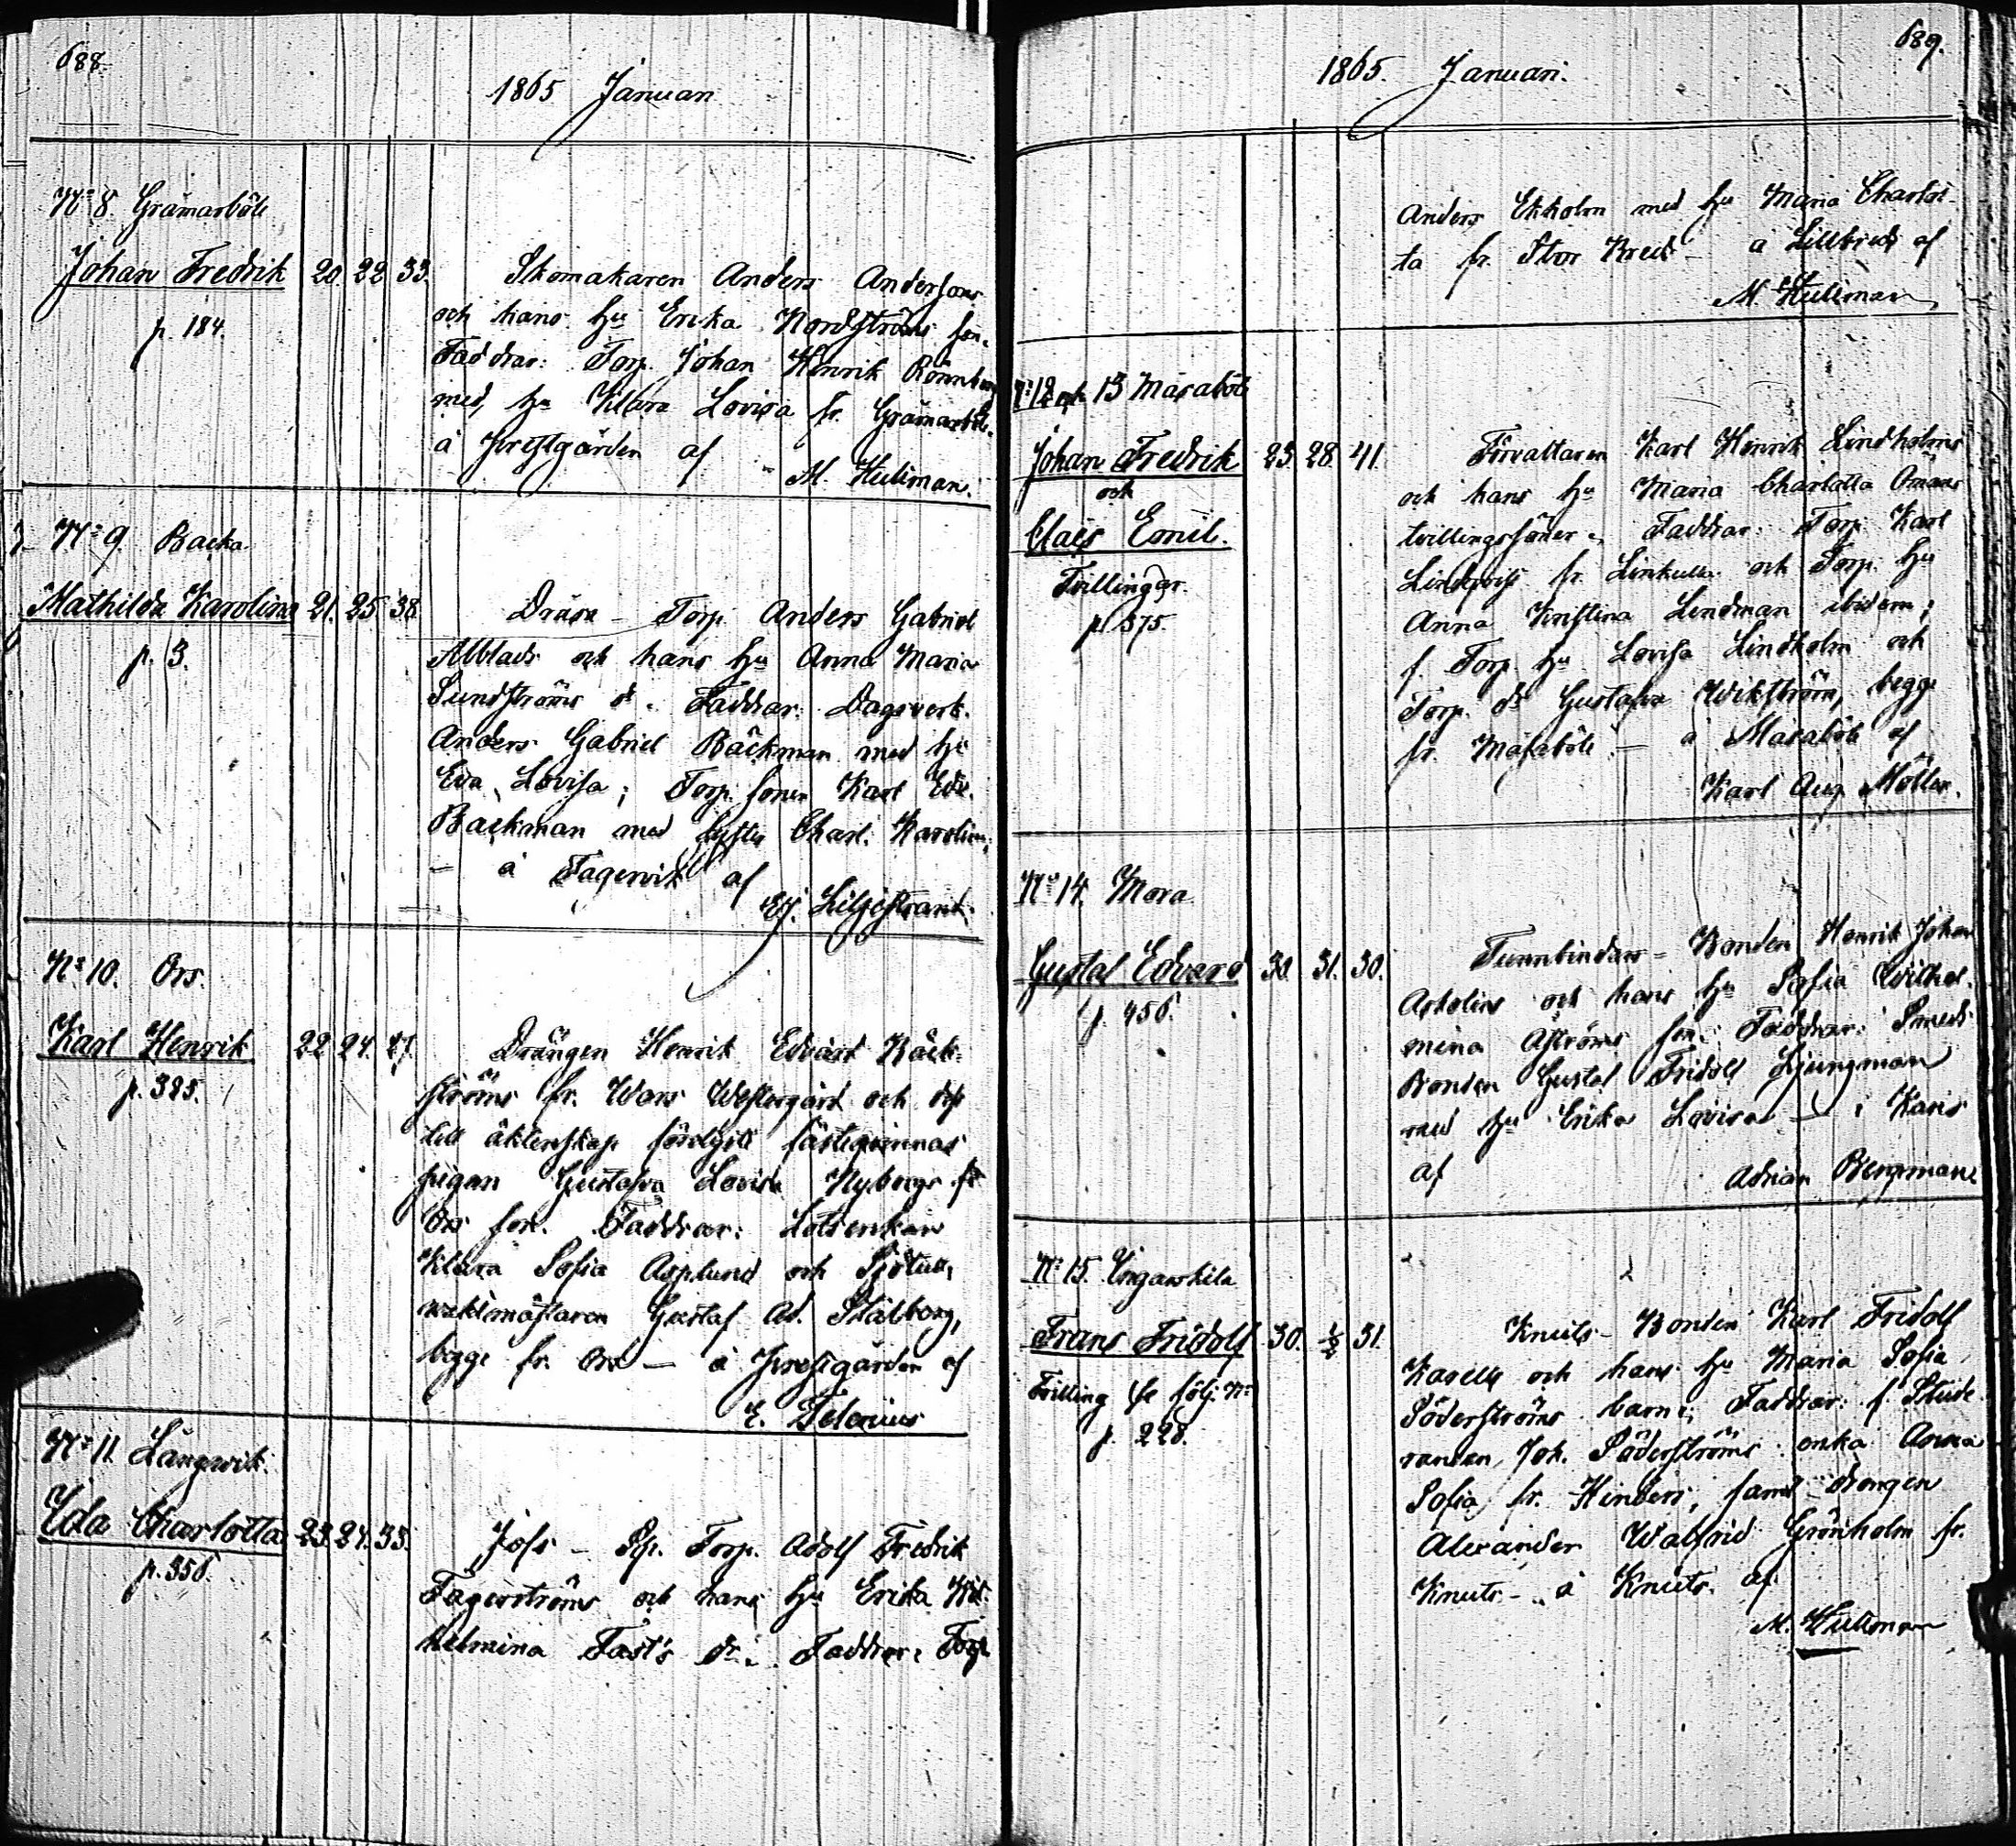 688.
1865 Januari
No 8. Gråmarböle
Johan Fredrik 20. 22. 33.
p. 184.
Skomakaren Anders Andersons
och hans hu Erika Nordströms son.
Faddrar: Torp. Johan Henrik Rönnberg
med hu Klara Lovisa fr. Gråmarböle.
å Prestgården af
M. Hultman.
No 9. Backa
Mathilda Karolina 21. 25. 38
p. 3.
Torp. Anders Gabriel
och hans hu Anna Maria
Sundströms dr. Faddrar: Dagsverk.
Anders Gabriel Bäckman med hu
Eva Lovisa; Torp. sonen Karl Edv.
Backman med syster Charl. Karolina;
- å Fagervik af
Liljestrand.
No 10. Ors.
Karl Henrik 22. 24. 27.
p. 325.
Drängen Henrik Edvard Bäck-
ströms fr. Wars Westergård och dess
till äktenskap fästeqvinnas
pigan Gustafva Lovisa Nybergs fr.
Ors son. Faddrar: Lotsenkan
Klara Sofia Asplund och Sjötull-
vaktmästaren Gustaf Ad. Stålborg,
begge fr. Ors - å Prestgården af
E. Telenius
No 11. Långvik.
Ida Charlotta 23. 24. 35.
p. 356.
Jofs - Torp. Adolf Fredrik
Fagerströms och hans hu Erika Wil-
helmina Fast's dr. Faddrar: Torp.
689.
1865. Januari.
Anders Ekholm med hu Maria Charlot-
ta fr. Stor - å af
M. Hultman
No 12 och 13 Masaböle
Johan Fredrik 23. 28. 41.
och
Claes Emil.
Tvillingar.
p. 375.
Förvaltaren Karl Henrik Lindholms
och hans hu Maria Charlotta Ömans
tvillingssöner. Faddrar: Torp. Karl
Lindqvist fr. Linkulla och Torp. hu
Anna Kristina Lindman ibidem;
f. Torp. hu Lovisa Lindholm och
Torp. dr Gustafva Wikström, begge
fr. Masaböle. - å Masaböle af
Karl Aug. Möller.
No 14. Mora
Gustaf Edvard 30. 31. 30.
p. 456.
Tunnbindars - Bonden Henrik Johan
och hans hu Sofia Wilhel-
mina Aströms son. Faddrar: Smeds
Bonden Gustaf Fridolf Ljungman
med hu Erika Lovisa - i Karis
af Adrian Bergman
No 15. Ingarskila
Frans Fridolf 30. 1/2 31.
Tvilling se följ. No
p. 228.
Knuts - Bonden Karl Fridolf
och hans hu Maria Sofia
Söderströms barn. Faddrar: f. Stude-
randen Joh. Söderströms enka Anna
Sofia fr. Hinders, samt drengen
Alexander Walfrid Grönholm fr.
Knuts - å Knuts. af
M. Hultman